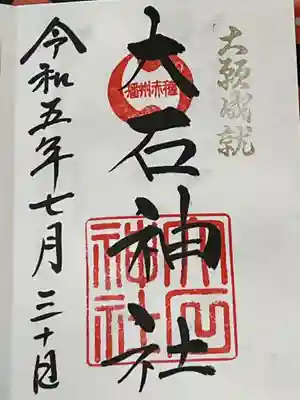 大願成就
播州赤穂
大石神社
大石神社
令和五年七月三十日